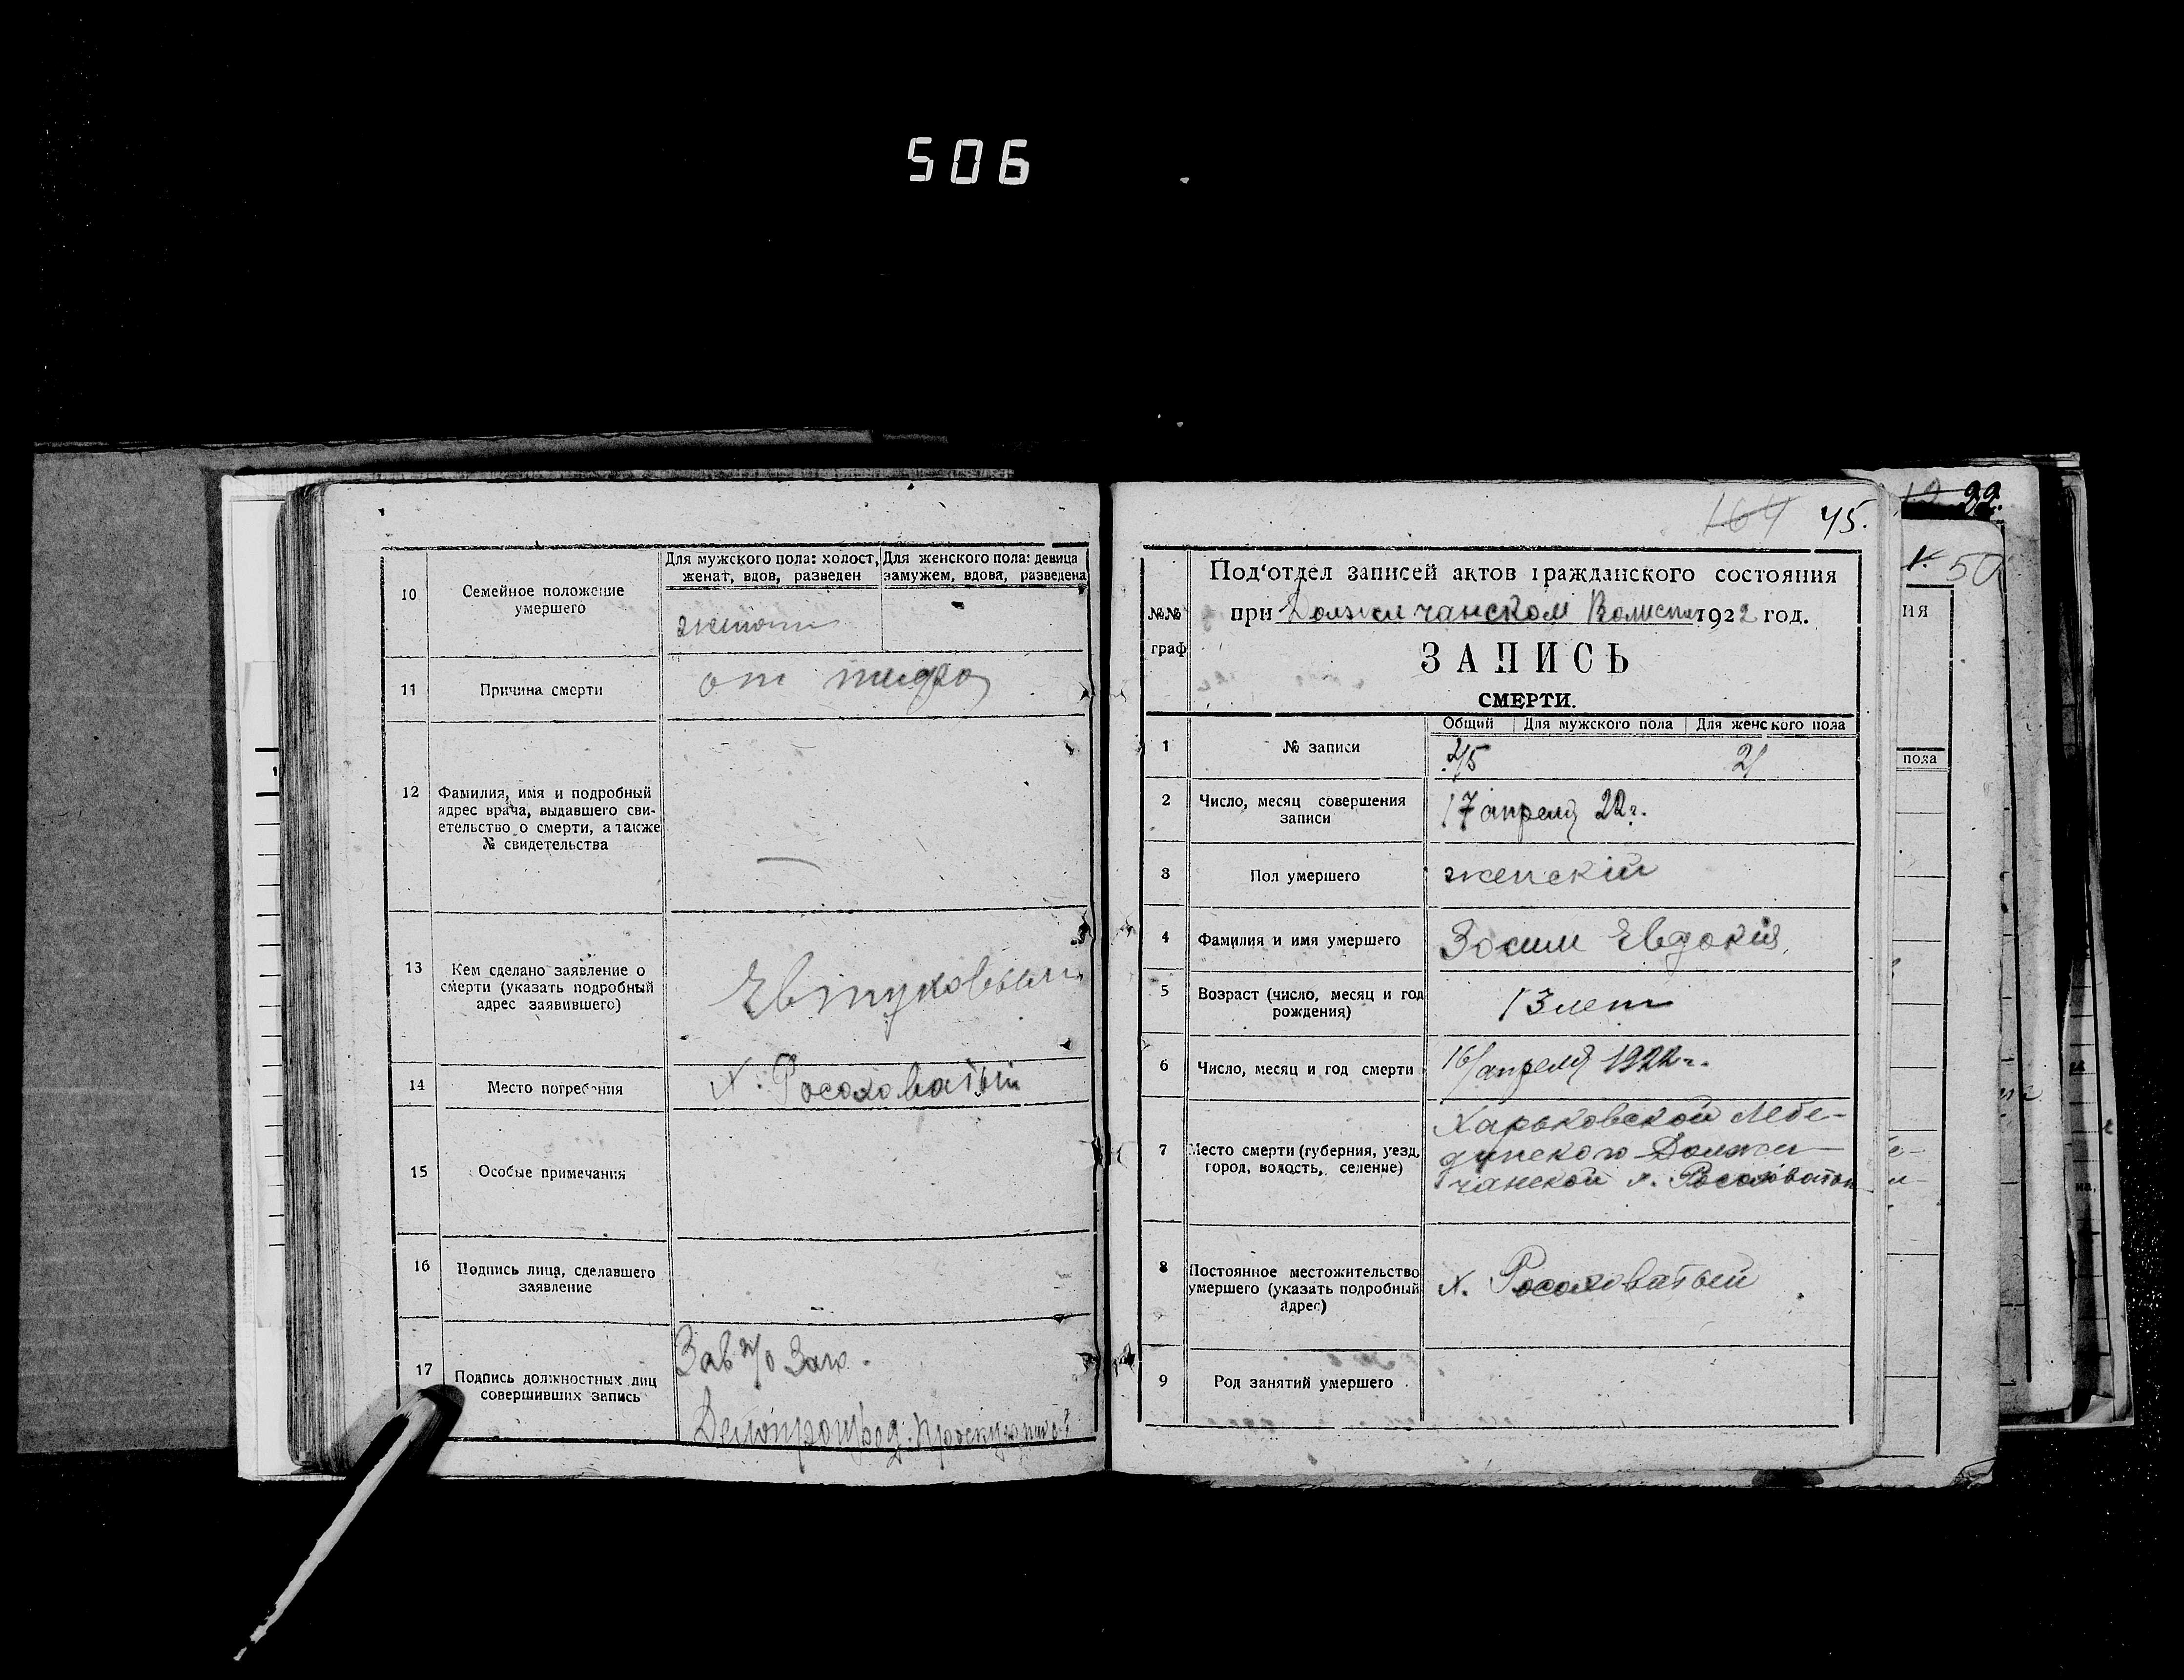 506
10
Семейное положение
умершего
Для мужского пола: холост,
женат, вдов, разведен
Для женского пола: девица
замужем, вдова, разведена
женат
11
Причина смерти
от тифа
12
Фамилия, имя и подробный
адрес врача, выдавшего сви-
етельство о смерти, а также
№ свидетельства
13
Кем сделано заявление о
смерти (указать подробный
адрес заявившего)
Евтуховым
14
Место погребения
х. Росоховатый
15
Особые примечания
16
Подпись лица, сделавшего
заявление
17
Подпись должностных лиц
совершивших запись
Зав п/о Загс.
Делопроизвод.
164 45.
№№
граф
Под‘отдел записей актов гражданского состояния
при Должичанском Волиспол 1922 год.
ЗАПИСЬ
СМЕРТИ.
1
№ записи
Общий
Для мужского пола
Для женского пола
45
21
2
Число, месяц совершения
записи
17 апреля 22 г.
3
Пол умершего
женскій
4
Фамилия и имя умершего
Зосим Евдокия,
5
Возраст (число, месяц и год
рождения)
13 лет
6
Число, месяц и год смерти
16/апреля 1922 г.
7
Место смерти (губерния, уезд,
город, волость, селение)
Харьковской Лебе-
динского Должи
чанской х. Росоховатый
8
Постоянное местожительство
умершего (указать подробный
адрес)
х. Росоховатый
9
Род занятий умершего
22.
50
ия
пола